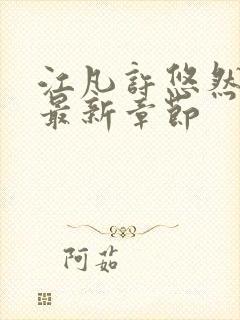 江凡许悠然
最新章节
阿茹